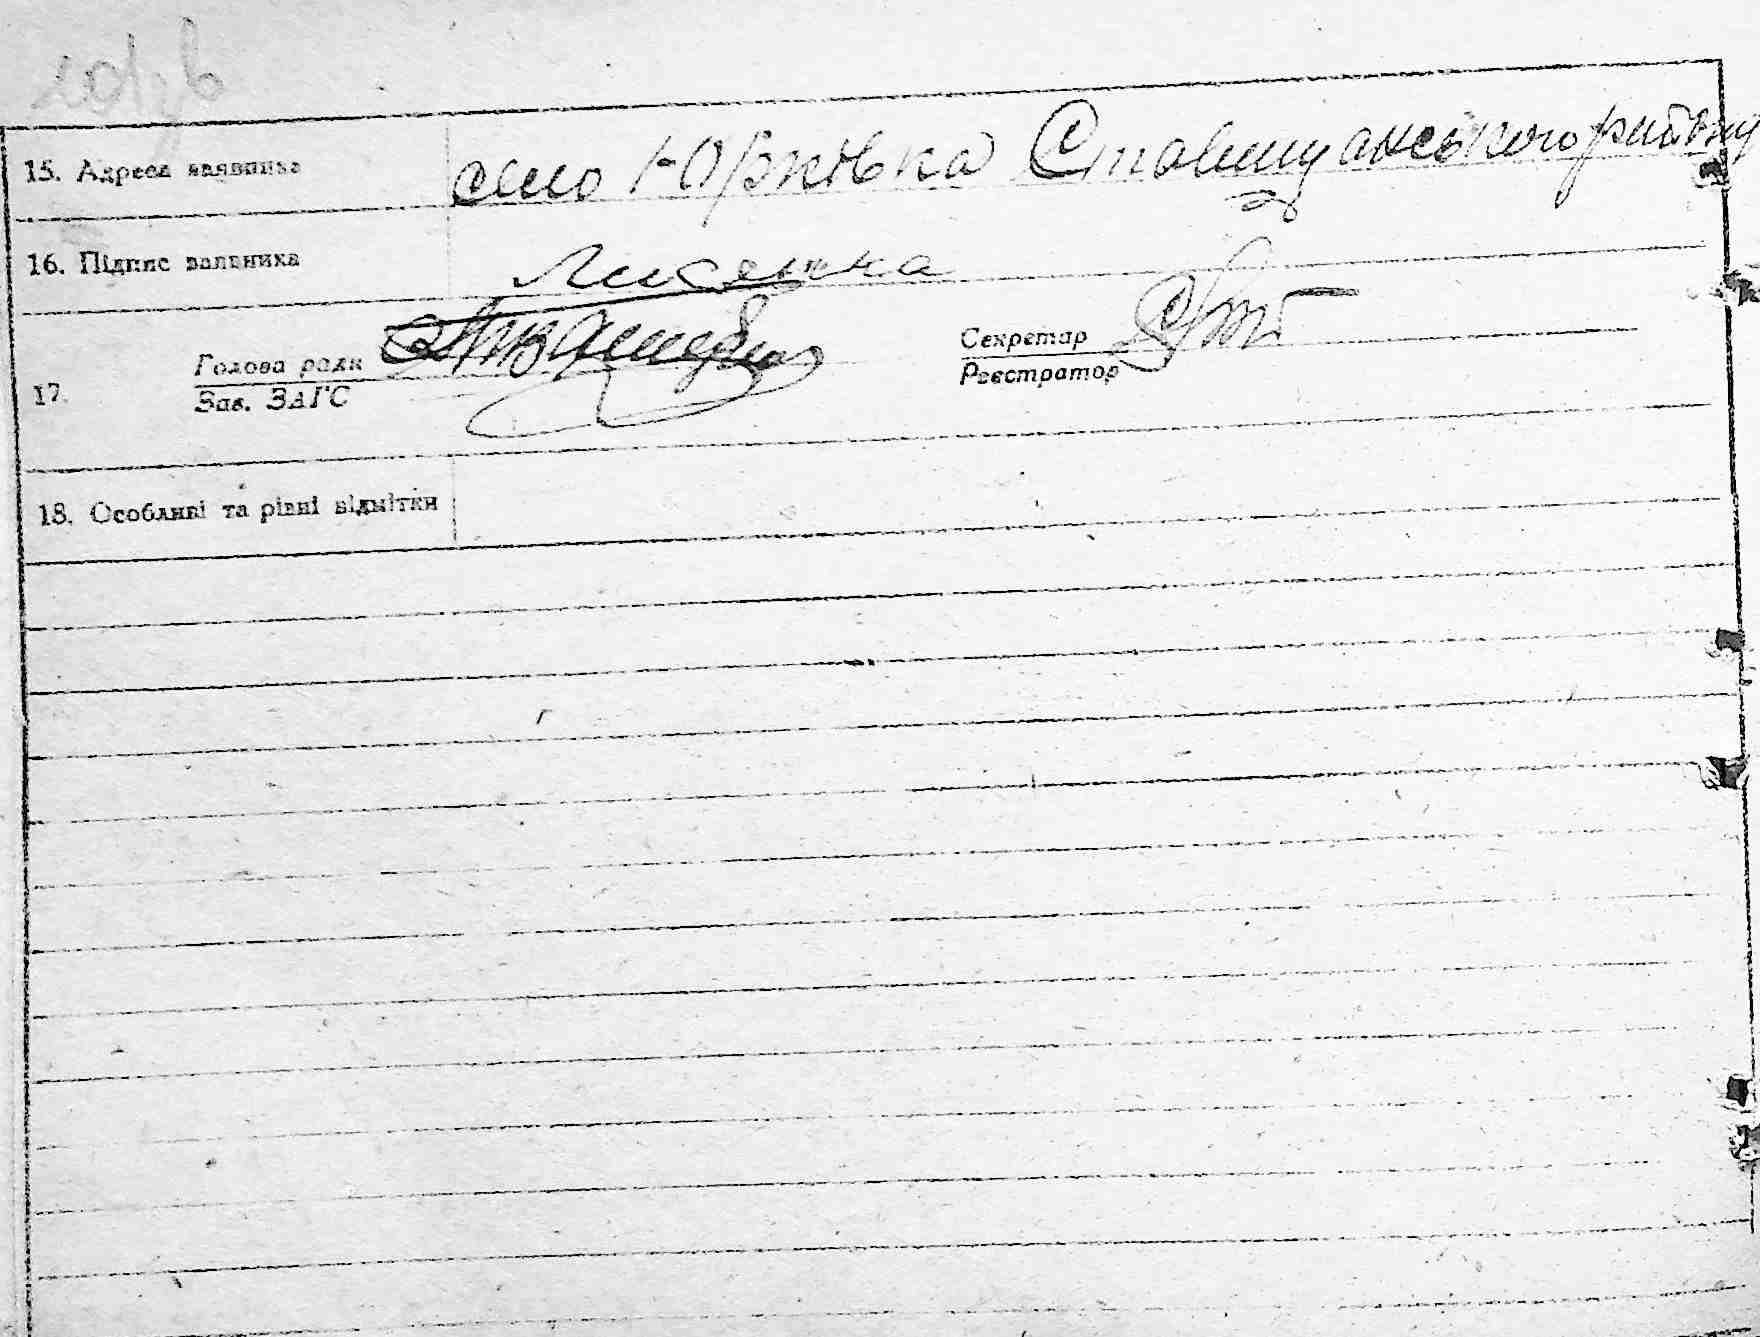 15. Адреса заявника село Юрківка Ставищанського району
16. Підпис заявника Лисенка
17. Голова ради Секретар
Зав. ЗАГС Реєстратор
18. Особливі та різні відмітки